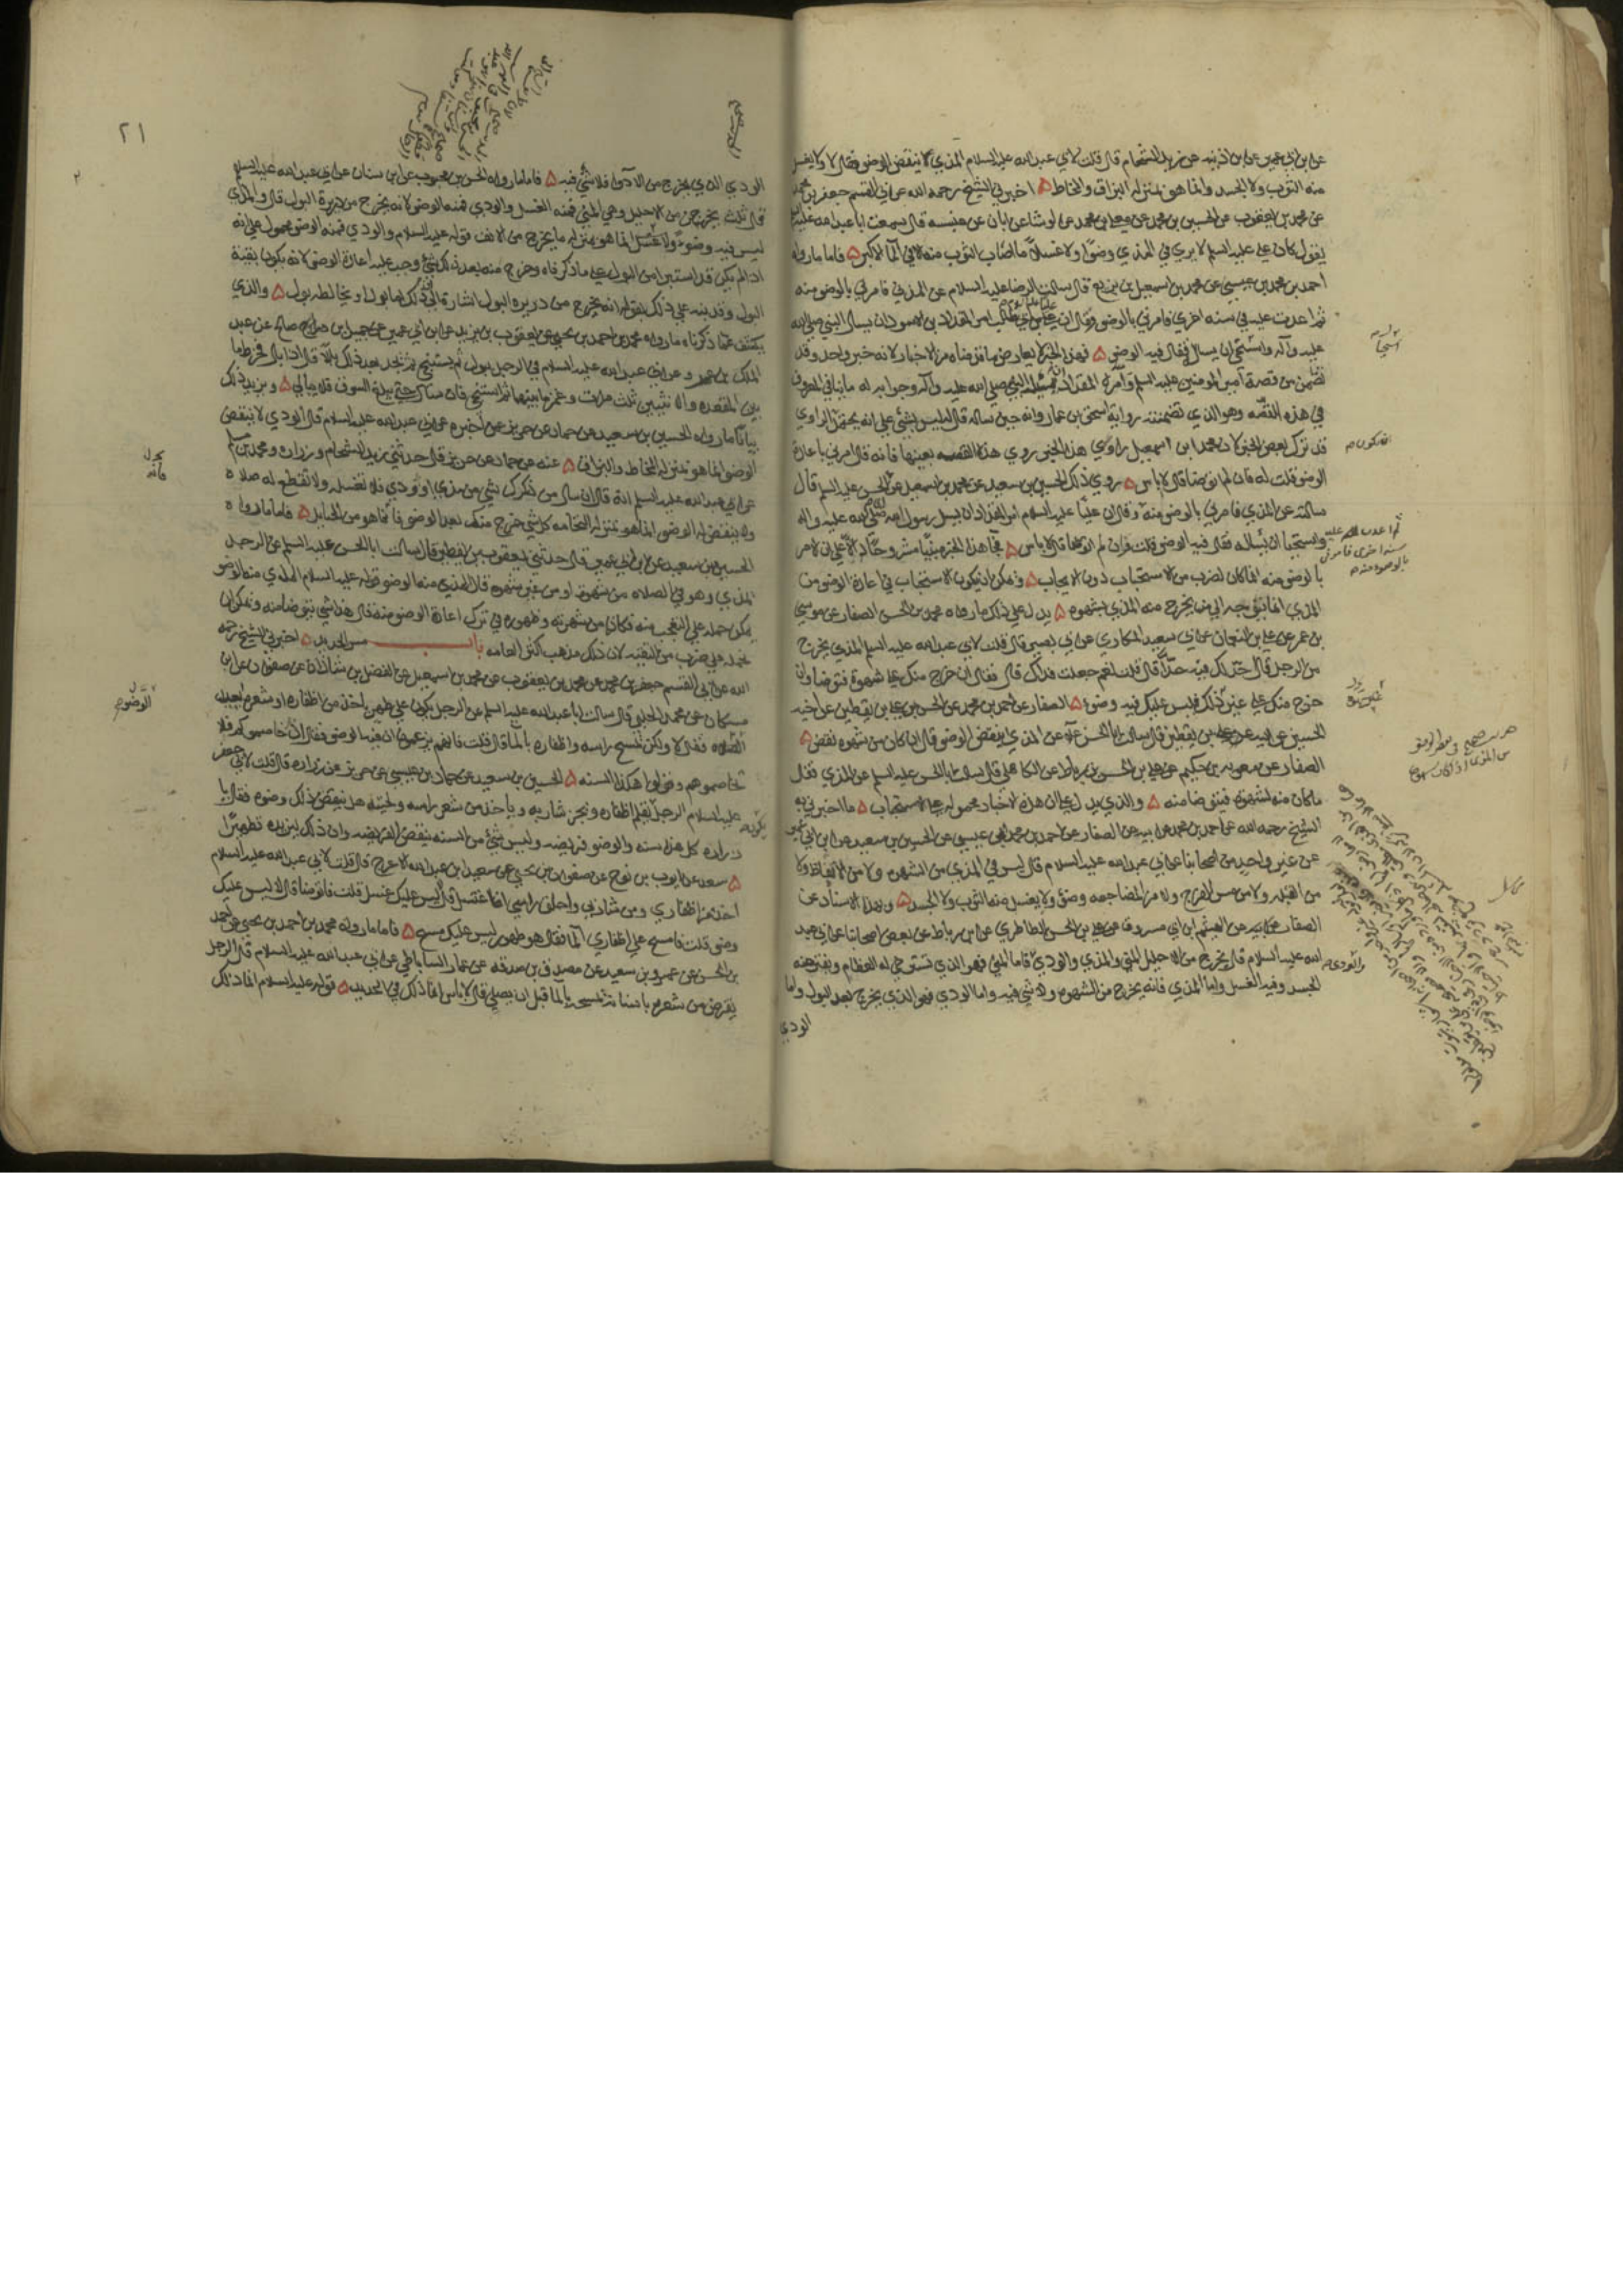 عن ابن ابي عمير عن ابن اذينه عن زيد الشحام قال قلت لابي عبد الله عليه السلام المذي ينقض الوضو فقال لا ولا يغسل
منه الثوب ولا الجسد وانما هو بمنزله البزاق والمخاط ۵ اخبرني الشيخ رحمه الله عن ابي القسم جعفر بن محمد
عن محمد بن يعقوب عن الحسين بن محمد عن معلى بن محمد عن الوشا عن ابان عن عنبسه قال سمعت ابا عبد الله عليه السلم
يقول كان علي عليه السلم لا يري في المذي وضوًا ولا غسلًا ما اصاب الثوب منه الا في الما الاكبر ۵ فاما ما رواه
احمد بن محمد بن عيسي عن محمد بن اسمعيل بن بزيع قال سالت الرضا عليه السلام عن المذي فامرني بالوضو منه
ثم اعدت عليه في سنه اخري فامرني بالوضو وقال ان علي بن ابي طالب امر المقداد بن الاسود ان يسال النبي صلي الله
عليه وآله واستحي ان يساله فقال فيه الوضو ۵ فهذا الخبر لا يعارض ما قدمناه من الاخبار لانه خبر واحد وقد
تضمن من قصة امير المومنين عليه السلم وامره المقداد بمسئله النبي صلي الله عليه وآله وجوابه له ما ينافي المعروف
في هذه القصه وهو الذي تضمنته رواية اسحق بن عمار وانه حين ساله قال ليس بشئ علي انه يحتمل الراوي
قد ترك بعض الخبر لان محمد ابن اسمعيل راوي هذا الخبر روي هذه القصه بعينها فانه قال امرني باعادة
الوضو قلت له فان لم اتوضا قال لا باس ۵ روي ذلك الحسين بن سعيد عن محمد بن اسمعيل عن ابي الحسن عليه السلم قال
سالته عن المذي فامرني بالوضو منه وقال ان عليًا عليه السلام امر المقداد ان يسل رسول الله صلي الله عليه واله
واستحيا ان يساله فقال فيه الوضو قلت فان لم اتوضا قال لا باس ۵ فجا هذا الخبر مبينًا مشروحًا دالًا علي ان الامر
بالوضو منه انما كان لضرب من الاستحباب دون الايجاب ۵ ويمكن ان يكون الاستحباب في اعادة الوضو من
المذي انما يتوجه الي من يخرج منه المذي بشهوه ۵ يدل علي ذلك ما رواه محمد بن الحسن الصفار عن موسي
بن عمر عن علي بن النعمان عن ابي سعيد المكاري عن ابي بصير قال قلت لابي عبد الله عليه السلم المذي يخرج
من الرجل قال احد لك فيه حدًا قال قلت نعم جعلت فداك قال فقال ان خرج منك علي شهوة فتوضا وان
خرج منك علي غير ذلك فليس عليك فيه وضو ۵ الصفار عن احمد بن محمد عن الحسن بن علي بن يقطين عن اخيه
الحسين عن ابيه عن علي بن يقطين قال سالت ابا الحسن عن المذي اينقض الوضو قال ان كان من شهوه نقض ۵
الصفار عن معويه بن حكيم عن علي بن الحسن بن رباط عن الكاهلي قال سالت ابا الحسن عليه السلم عن المذي فقال
ما كان منه لشهوه فيتوضا منه ۵ والذي يدل علي ان هذه الاخبار محموله علي الاستحباب ۵ ما اخبرني به
الشيخ رحمه الله عن احمد بن محمد عن ابيه عن الصفار عن احمد بن محمد بن عيسي عن الحسين بن سعيد عن ابن ابي عمير
عن غير واحد من اصحابنا عن ابي عبد الله عليه السلام قال ليس في المذي من الشهوه ولا من الانعاظ ولا
من القبله ولا من مس الفرج ولا من المضاجعه وضو ولا يغسل منه الثوب ولا الجسد ۵ وبهذا الاسناد عن
الصفار عن الهيثم ابن ابي مسروق عن علي بن الحسن الطاطري عن ابن رباط عن بعض اصحابنا عن ابي عبد
الله عليه السلام قال يخرج من الاحليل المني والمذي والودي فاما المني فهو الذي تسترخي له العظام ويفتر منه
الجسد وفيه الغسل واما المذي فانه يخرج من الشهوه ولا شي فيه واما الودي فهو الذي يخرج بعد البول واما
الودي
ثم اعدت عليه
سنه اخري فامرني
بالوضوء منه
والودي
٢١
الودي الذي يخرج من الادوا فلا شي فيه ۵ فاما ما رواه الحسن بن محبوب عن ابن سنان عن ابي عبد الله عليه السلم
قال ثلث يخرجن من الاحليل وهي المني فمنه الغسل والودي فمنه الوضو لانه يخرج من دريرة البول قال والمذي
ليس فيه وضوء ولا غسل انما هو بمنزله ما يخرج من الانف قوله عليه السلام والودي فمنه الوضو محمول علي انه
اذا لم يكن قد استبرا من البول علي ما ذكرناه وخرج منه بعد ذلك شئ وجب عليه اعادة الوضو لانه يكون بقية
البول وقد نبه علي ذلك بقوله انه يخرج من دريره البول اشارة الي ذلك انما بول او يخالطه بول ۵ والذي
يكشف عما ذكرناه ما رواه محمد بن احمد بن يحيي عن يعقوب بن يزيد عن ابن ابي عمير عن جميل ابن صالح عن عبد
الملك بن عمرو عن ابي عبد الله عليه السلام في الرجل يبول ثم يستنجي ثم يجد بعد ذلك بللا قال اذا بال فخرط ما
بين المقعده والانثيين ثلث مرات وغمز ما بينهما ثم استنجي فان سال حتي يبلغ السوق فلا يبالي ۵ ويزيد ذلك
بيانًا ما رواه الحسين بن سعيد عن حماد عن حريز عن اخبره عن ابي عبد الله عليه السلام قال الودي لا ينقض
الوضو انما هو بمنزله المخاط والبزاق ۵ عنه عن حماد عن حريز قال حدثني زيد الشحام وزراره ومحمد بن مسلم
عن ابي عبد الله عليه السلم انه قال ان سال من ذكرك شي من مذي او ودي فلا تغسله ولا تقطع له صلاه
ولا ينقض له الوضو انما هو بمنزله النخامه كل شي خرج منك بعد الوضو فانما هو من الحبايل ۵ فاما ما رواه
الحسين بن سعيد عن ابن ابي عمير قال حدثني يعقوب بن يقطين قال سالت ابا الحسن عليه السلم عن الرجل
المذي وهو في الصلاه من شهوة او من غير شهوه قال المذي منه الوضو قوله عليه السلام المذي منه الوضو
يمكن حمله علي التعجب منه فكانه من شهرته وظهوره في ترك اعادة الوضو منه قال هذا شي نتوضا منه ويمكن ان
نحمله علي ضرب من التقيه لان ذلك مذهب اكثر العامه باب مس الحديد ۵ اخبرني الشيخ رحمه
الله عن ابي القسم جعفر بن محمد عن محمد بن يعقوب عن محمد بن اسمعيل عن الفضل بن شاذان عن صفوان عن ابن
مسكان عن محمد الحلبي قال سالت ابا عبد الله عليه السلم عن الرجل يكون علي طهر ياخذ من اظفاره او شعره ايعيد
الصلاه فقال لا ولكن يمسح راسه واظفاره بالما قال قلت فانهم يزعمون ان فيه الوضو فقال ان خاصموكم فلا
تخاصموهم وقولوا هكذا السنه ۵ الحسين بن سعيد عن حماد بن عيسي عن حريز عن زراره قال قلت لابي جعفر
عليه السلام الرجل يقلم اظفاره ويجز شاربه وياخذ من شعر راسه ولحيته هل ينقض ذلك وضوه فقال يا
زراره كل هذا سنه والوضو فريضه وليس شئ من السنه ينقض الفريضه وان ذلك ليزيده تطهيرًا
۵ سعد عن ايوب بن نوح عن صفوان بن يحيي عن سعيد ابن عبد الله الاعرج قال قلت لابي عبد الله عليه السلام
اخذ من اظفاري ومن شاربي واحلق راسي افاغتسل قال ليس عليك غسل قلت فاتوضا قال لا ليس عليك
وضو قلت فامسح علي اظفاري الما فقال هو طهور ليس عليك مسح ۵ فاما ما رواه محمد بن احمد بن يحيي عن احمد
بن الحسن عن عمرو بن سعيد عن مصدق بن صدقه عن عمار الساباطي عن ابي عبد الله عليه السلام قال الرجل
يقرض من شعره باسنانه ايمسحه بالما قبل ان يصلي قال لا باس انما ذلك في الحديد ۵ قوله عليه السلام انما ذلك
الوضو